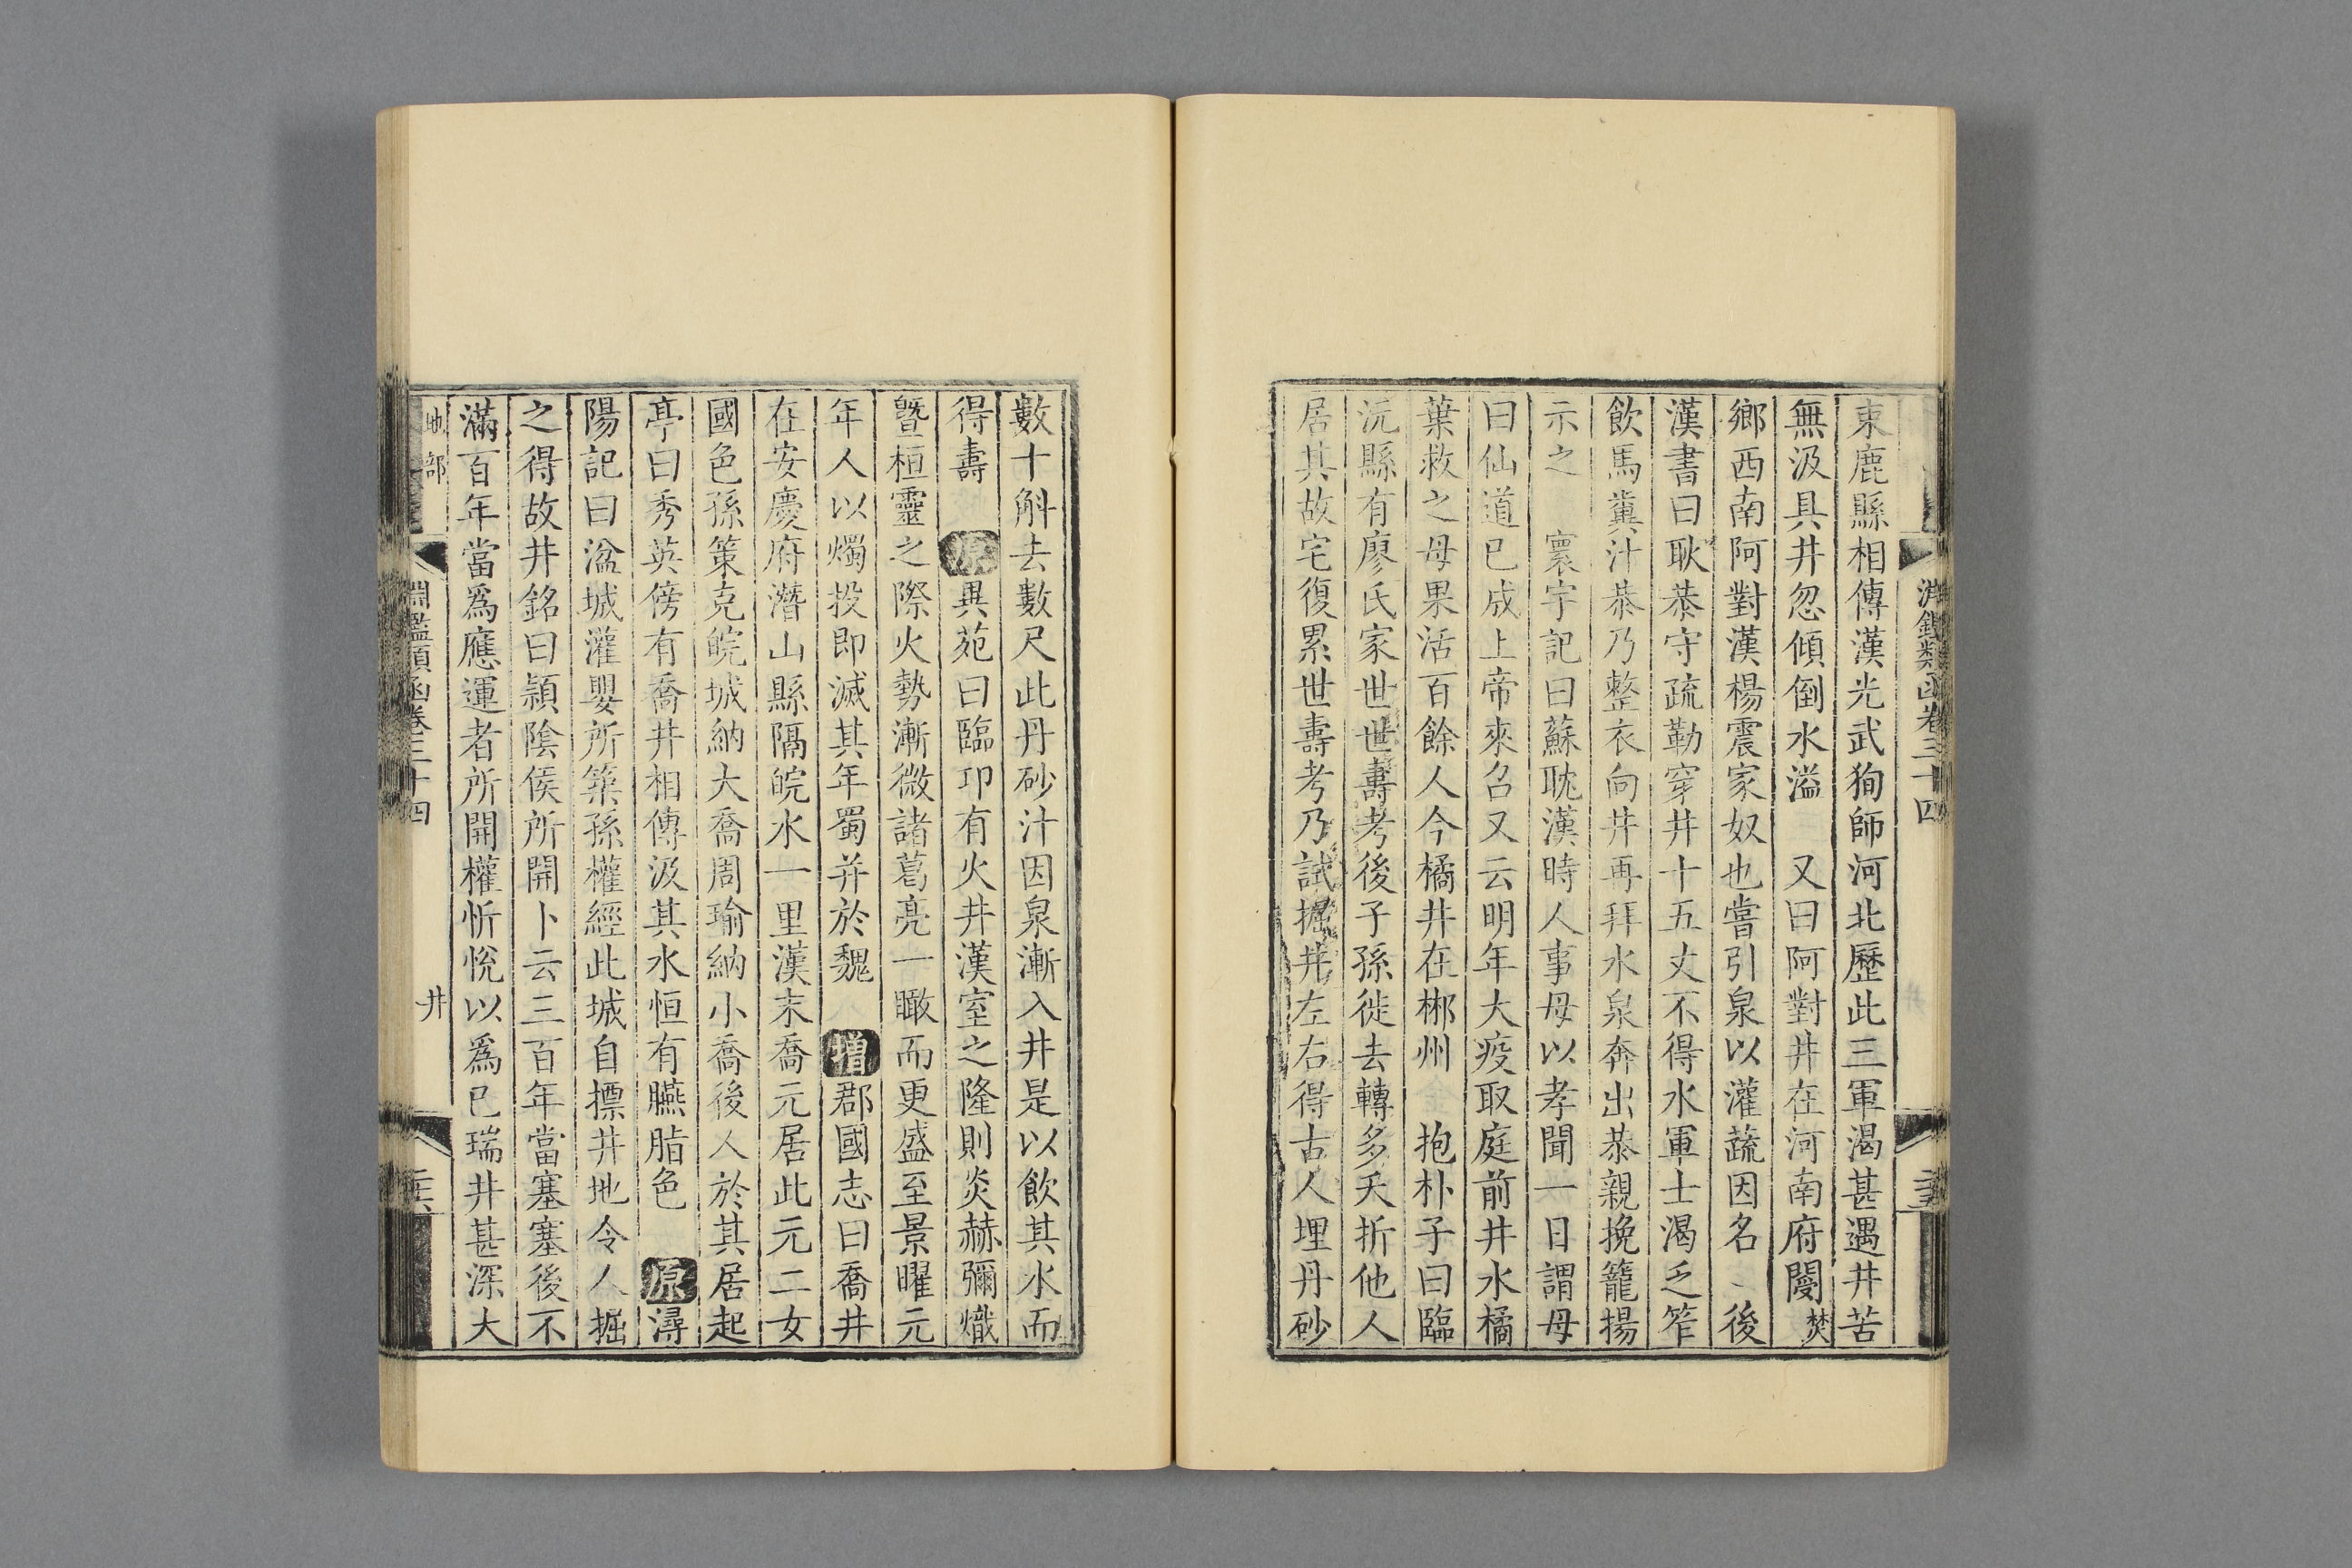 淵鑑類函卷三十四
二十五
束鹿縣相傳漢光武狥師河北歷此三軍渴甚遇井苦
無汲具井忽傾倒水溢　又曰阿對井在河南府閿焚
鄉西南阿對漢楊震家奴也嘗引泉以灌蔬因名　後
漢書曰耿恭守疏勒穿井十五丈不得水軍士渴乏笮
飲馬糞汁恭乃整衣向井再拜水泉奔出恭親挽籠揚
示之　寰宇記曰蘇耽漢時人事母以孝聞一日謂母
曰仙道已成上帝來召又云明年大疫取庭前井水橘
葉救之母果活百餘人今橘井在郴州　抱朴子曰臨
沅縣有廖氏家世世壽考後子孫徙去轉多夭折他人
居其故宅復累世壽考乃試掘井左右得古人埋丹砂
數十斛去數尺此丹砂汁因泉漸入井是以飲其水而
得壽　原異苑曰臨卭有火井漢室之隆則炎赫彌熾
暨桓靈之際火勢漸微諸葛亮一瞰而更盛至景曜元
年人以燭投即滅其年蜀并於魏　增郡國志曰喬井
在安慶府潛山縣隔皖水一里漢末喬元居此元二女
國色孫策克皖城納大喬周瑜納小喬後人於其居起
亭曰秀英傍有喬井相傳汲其水恒有臙脂色　原潯
陽記曰湓城灌嬰所築孫權經此城自摽井地令人掘
之得故井銘曰潁陰侯所開卜云三百年當塞塞後不
滿百年當爲應運者所開權忻悅以爲已瑞井甚深大
地部
淵鑑類函卷三十四
井
二十六